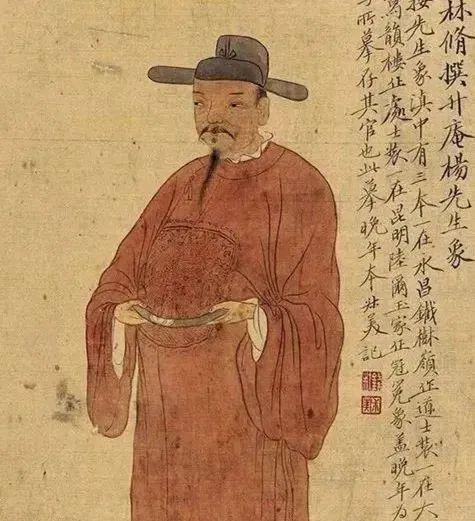 林脩撰升庵楊先生象
按先生象滇中有三本一在永昌鐵樹嶺作道士裝一在大
寫韻樓作處士裝一在昆明陸爾玉家作冠冕象蓋晚年為
所摹存其官也此摹晚年本壯美記